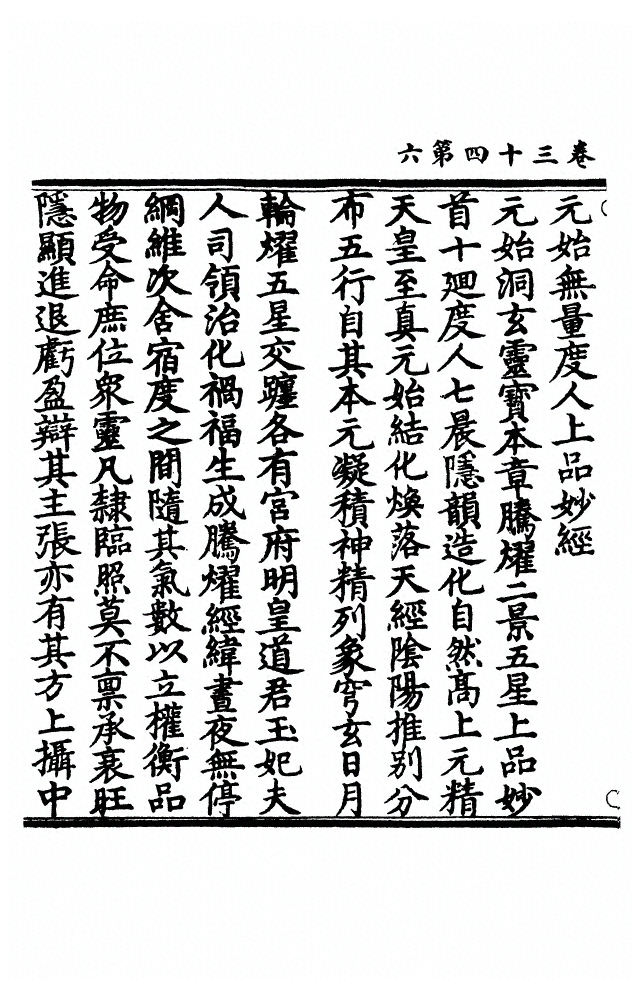 卷三十四第六
元始無量度人上品妙經
元始洞玄靈寶本章騰燿二景五星上品妙
首十廻度人七晨隱韻造化自然高上元精
天皇至真元始結化煥落天經陰陽推别分
布五行自其本元凝積神精列象穹玄日月
輪燿五星交躔各有宮府明皇道君玉妃夫
人司領治化禍福生成騰燿經緯晝夜無停
綱維次舍宿度之間隨其氣數以立權衡品
物受命庶位衆靈凡隸臨照莫不禀承衰旺
隱顯進退虧盈辯其主張亦有其方上攝中